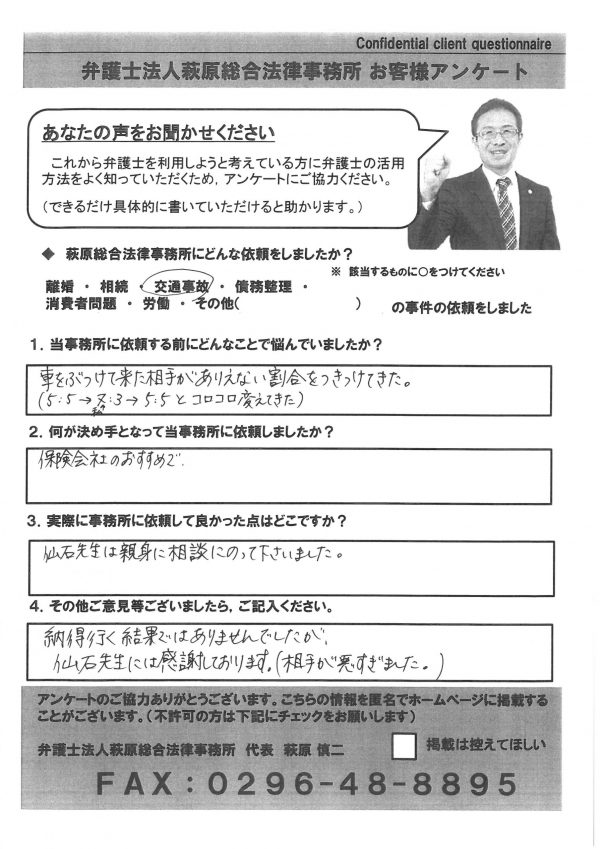 Confidential client questionnaire
弁護士法人萩原総合法律事務所 お客様アンケート
あなたの声をお聞かせください
これから弁護士を利用しようと考えている方に弁護士の活用
方法をよく知っていただくため，アンケートにご協力ください。
（できるだけ具体的に書いていただけると助かります。）
◆ 萩原総合法律事務所にどんな依頼をしましたか？
※ 該当するものに○をつけてください
離婚 ・ 相続 ・ 交通事故 ・ 債務整理 ・
消費者問題 ・ 労働 ・ その他（ ） の事件の依頼をしました
１．当事務所に依頼する前にどんなことで悩んでいましたか？
車をぶつけて来た相手がありえない割合をつきつけてきた。
(5:5→ :3→5:5とコロコロ変えてきた)
２．何が決め手となって当事務所に依頼しましたか？
保険会社のおすすめで.
３．実際に事務所に依頼して良かった点はどこですか？
仙石先生は親身に相談にのって下さいました。
４．その他ご意見等ございましたら，ご記入ください。
納得行く結果ではありませんでしたが、
仙石先生には感謝しております。(相手が悪すぎました。)
アンケートのご協力ありがとうございます。こちらの情報を匿名でホームページに掲載する
ことがございます。（不許可の方は下記にチェックをお願いします）
弁護士法人萩原総合法律事務所 代表 萩原 慎二
掲載は控えてほしい
ＦＡＸ：０２９６-４８-８８９５